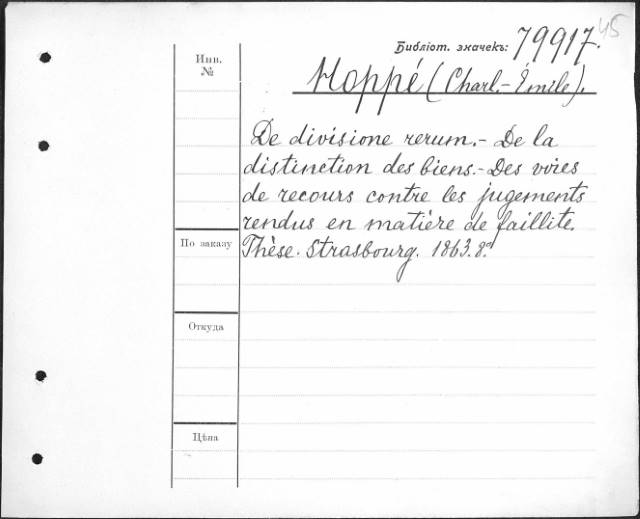 45
Библіот. значекъ: 79917.
Инв.
№
Hoppé (Charl.-Émile).
De divisione rerum.- De la
distinction des biens.- Des voies
de recours contre les jugements
rendus en matière de faillite.
По заказу
Thèse. Strasbourg. 1863. 8º
Откуда
Цѣна